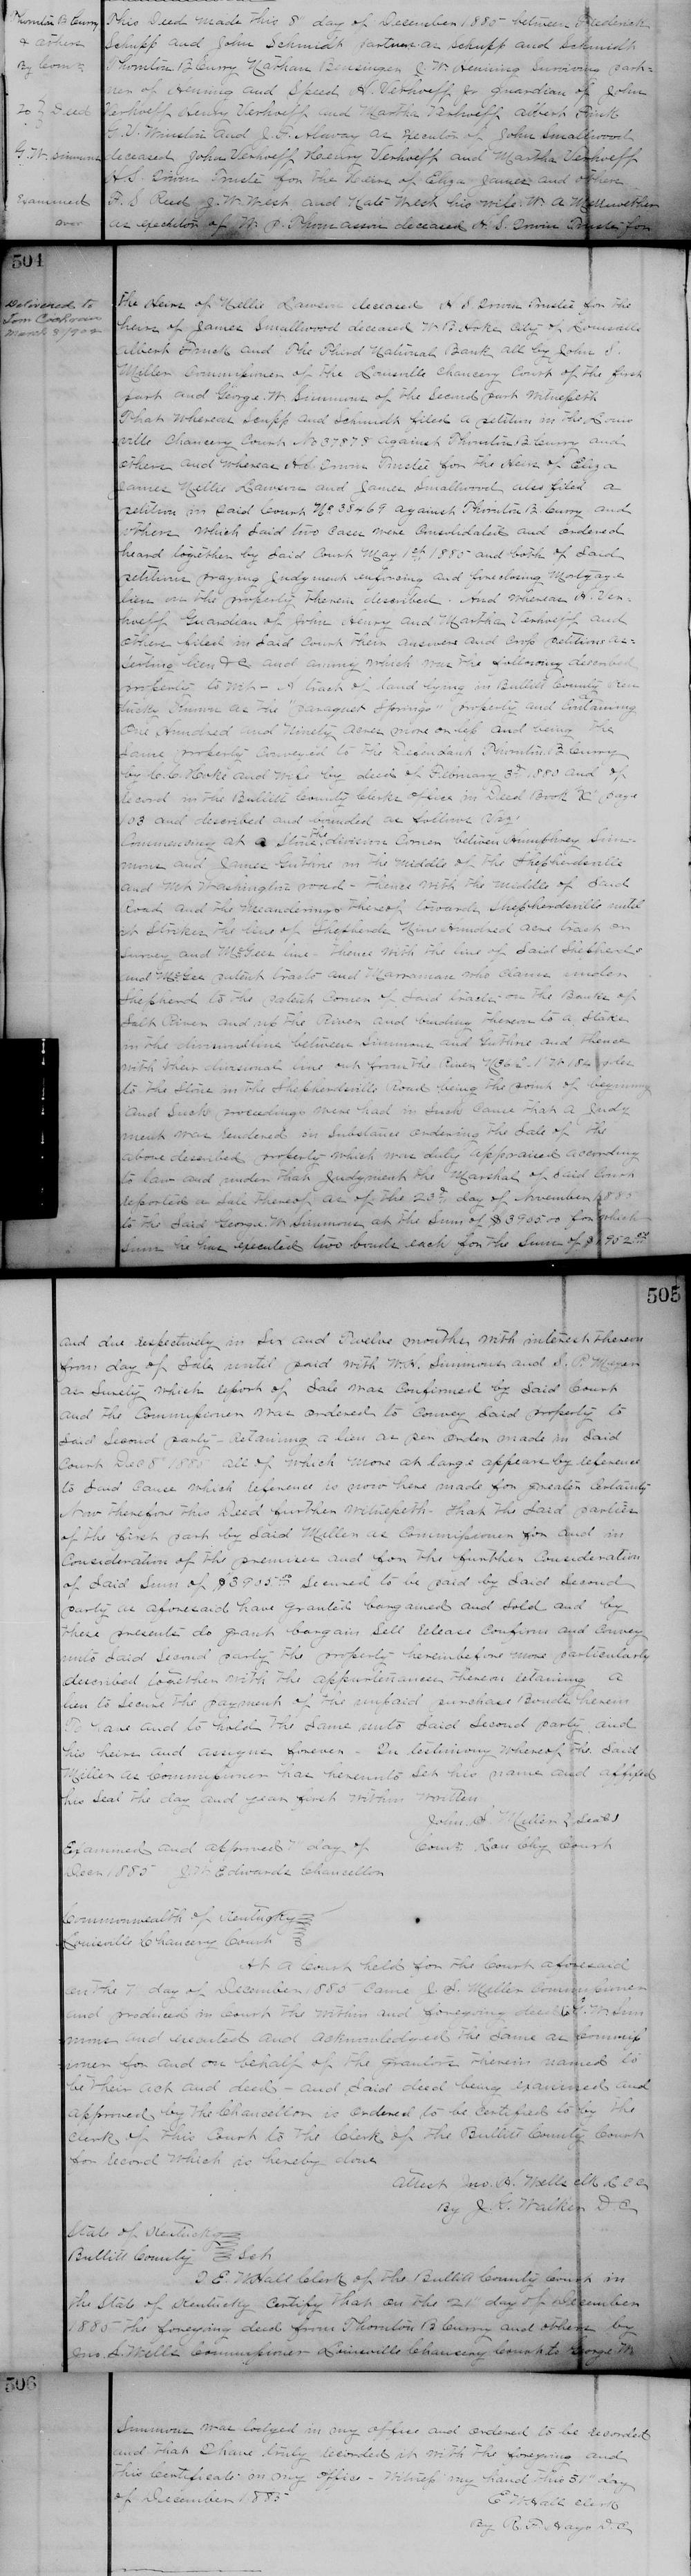 Thornton B Curry
& others
By Comr
To } Deed
G. W. Simmons
Examined
over
This Deed made this 8" day of December 1885 between Frederick
Schupp and John Schmidt partners as Schupp and Schmidt
Thornton B Curry Nathan Bensinger J. W. Henning Surviving part=
ner of Henning and Speed H. Verhoeff Jr guardian of John
Verhoeff Henry Verhoeff and Martha Verhoeff albert Fink
G. V. Winston and J. F. as Executor of John Smallwood
deceased John Verhoeff Henry Verhoeff and Martha Verhoeff
H. S. Irwin Trustee for the Heirs of Eliza James and others
F. S. Reed J. W. West and Kate West his wife W. A Merriwether
as executor of W. P. Thomasson deceased H. S. Irwin Trustee for
504
Delivered to
Tom Cochran
March
the Heirs of Nellie Lawson deceased H S Irwin Trustee for the
heirs of James Smallwood deceased W. B. Hoke City of Louisville
albert Finck and The Third National Bank all by John S.
Miller Commissioner of the Louisville Chancery Court of the first
part and George W. Simmons of the Second part Witnesseth
That Whereas Scupp and Schmidt filed a petition in the Louis
ville Chancery Court No 37878 against Thornton B Curry and
others and whereas H.S. Irwin Trustee for the Heirs of Eliza
James Nellie Lawson and James Smallwood also filed a
petition in Said Court No 38469 against Thornton B Curry and
others which Said two Cases were Consolidated and ordered
heard together by Said Court May 1st 1885 and both of Said
petitions praying Judgment enforcing and foreclosing Mortgage
lien on the property therein described. And whereas H. Ver-
hoeff Guardian of John Henry and Martha Verhoeff and
others filed in Said Court their answers and Cross petitions as=
serting liens &c and among which was the following described
property to wit - A tract of land lying in Bullitt County Ken
tucky Known as the "Paraquet Springs" property and Containing
One Hundred and Ninety acres more or less and being the
Same property Conveyed to the Defendant Thornton B. Curry
by C. C. Hoke and wife by deed of February 3rd 1880 and of
record in the Bullitt County Clerks office in Deed Book page
103 and described and bounded as follows Viz:
Commencing at a Stone the division Corner between Humphrey Sim-
mons and James Guthrie in the middle of the Shepherdsville
and Mt Washington road - thence with the middle of Said
Road and the Meanderings thereof towards Shepherdsville until
it Strikes the line of Shepherds Nine Hundred acre tract on
Survey and McGees line - thence with the line of Said Shepherds
and McGee patent tracts and Marraman who claims under
Shepherd to the patent Corner of Said tracts on the Banks of
Salt River and up the River and binding thereon to a Stake
in the division line between Simmons and Guthrie and thence
with their divisional line out from the River poles
to the Stone in the Shepherdsville Road being the point of beginning
And Such proceedings were had in Such Cause that a Judg
ment was rendered in Substance ordering the Sale of the
above described property which was duly appraised according
to law and under that Judgment the Marshal of Said Court
reported a Sale thereof as of the 23rd day of November 1885
to the Said George W. Simmons at the Sum of $3905.00 for which
Sum he has executed two bonds each for the Sum of $1952.50
505
and due respectively in Six and Twelve months with interest thereon
from day of Sale until paid with W. H. Simmons and S. P. Meyer
as Surety which report of Sale was Confirmed by Said Court
and the Commissioner was ordered to Convey Said property to
Said Second party - retaining a lien as per order made in Said
Court Dec 8" 1885 all of which more at large appears by reference
to Said Cause which reference is now here made for greater Certainty
Now therefore this Deed further Witnesseth - that the Said parties
of the first part by Said Miller as Commissioner for and in
Consideration of the premises and for the further Consideration
of Said Sum of $3905.00 Secured to be paid by Said Second
party as aforesaid have granted bargained and Sold and by
these presents do grant bargain Sell release Confirm and Convey
unto Said Second party the property hereinbefore more particularly
described together with the appurtenances thereon retaining a
lien to Secure the payment of the unpaid purchase Bonds herein
To have and to hold the Same unto Said Second party and
his heirs and assigns forever - In testimony whereof the Said
Miller as Commissioner has hereunto Set his name and affixed
his Seal the day and year first within written
John S. Miller {Seal}
Examined and approved 7" day of Comr. Lou Chy Court
Decr 1885 J. W. Edwards Chancellor
Commonwealth of Kentucky
Louisville Chancery Court
At a Court held for the Court aforesaid
on the 7 day of December 1885 Came J. S. Miller Commissioner
and produced in Court the within and foregoing deed to G. W. Sim
mons and executed and acknowledged the Same as Commiss
ioner for and on behalf of the grantors therein named to
be their act and deed - and Said deed being examined and
approved by the Chancellor is ordered to be Certified to by the
Clerk of this Court to the Clerk of the Bullitt County Court
for record which is hereby done
Attest Jno. S. Wells clk L C C
By J. K. Walker D C
State of Kentucky
Bullitt County } Sct
I E. W Hall Clerk of the Bullitt County Court in
the State of Kentucky Certify that on the 21" day of December
1885 the foregoing deed from Thornton B Curry and others by
Jno. S. Mills Commissioner Louisville Chancery Court to George W
506
Simmons was lodged in my office and ordered to be recorded
and that I have truly recorded it with the foregoing and
this Certificate in my office - Witness my hand this 31" day
of December 1885
E W Hall clerk
By R. F. Hays D. C.